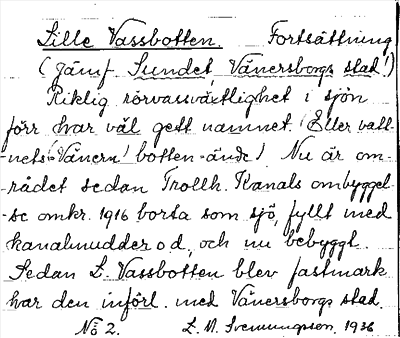 Lille Vassbotten. Fortsättning
(Jämf. Sundet, Vänersborgs stad!)
Riklig rörvassväxtlighet i sjön
förr har väl gett namnet. (Eller vatt-
nets (Vänern) botten=ände). Nu är om-
rådet sedan Trollh. Kanals ombyggel-
se omkr. 1916 borta som sjö, fyllt med
kanalmudder o d, och nu bebyggt.
Sedan L. Vassbotten blev fastmark
har den införl. med Vänersborgs stad.
No 2. L. M. Svenungsson. 1936